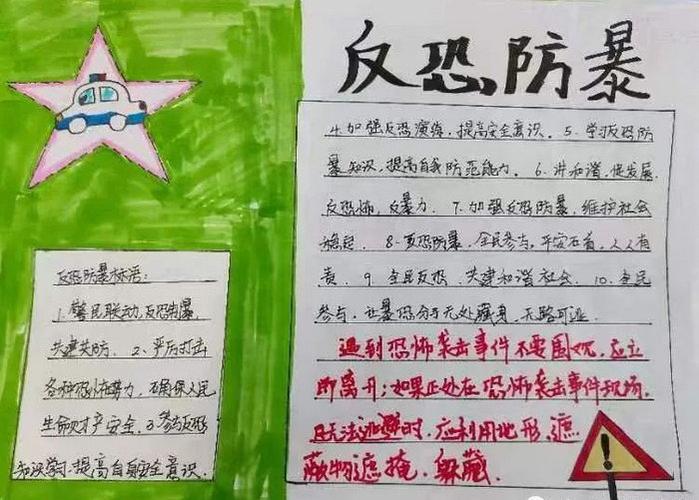 反恐防暴
反恐防暴标语：
1. 警民联动，反恐制暴，
共建共防. 2. 严厉打击
各种恐怖势力，确保人民
生命财产安全. 3. 参与反恐
知识学习，提高自身安全意识.
4. 加强反恐演练，提高安全意识. 5. 学习反恐防
暴知识，提高自我防范能力. 6. 讲和谐，促发展，
反恐怖，反暴力. 7. 加强反恐防暴，维护社会
稳定. 8. 反恐防暴，全民参与，平安石首，人人有
责. 9. 全民反恐，共建和谐社会. 10. 全民
参与，让暴恐分子无处藏身，无路可逃.
遇到恐怖袭击事件不要围观，应立
即离开；如果正处在恐怖袭击事件现场，
且无法逃避时，应利用地形，遮
蔽物遮掩，躲藏.
!